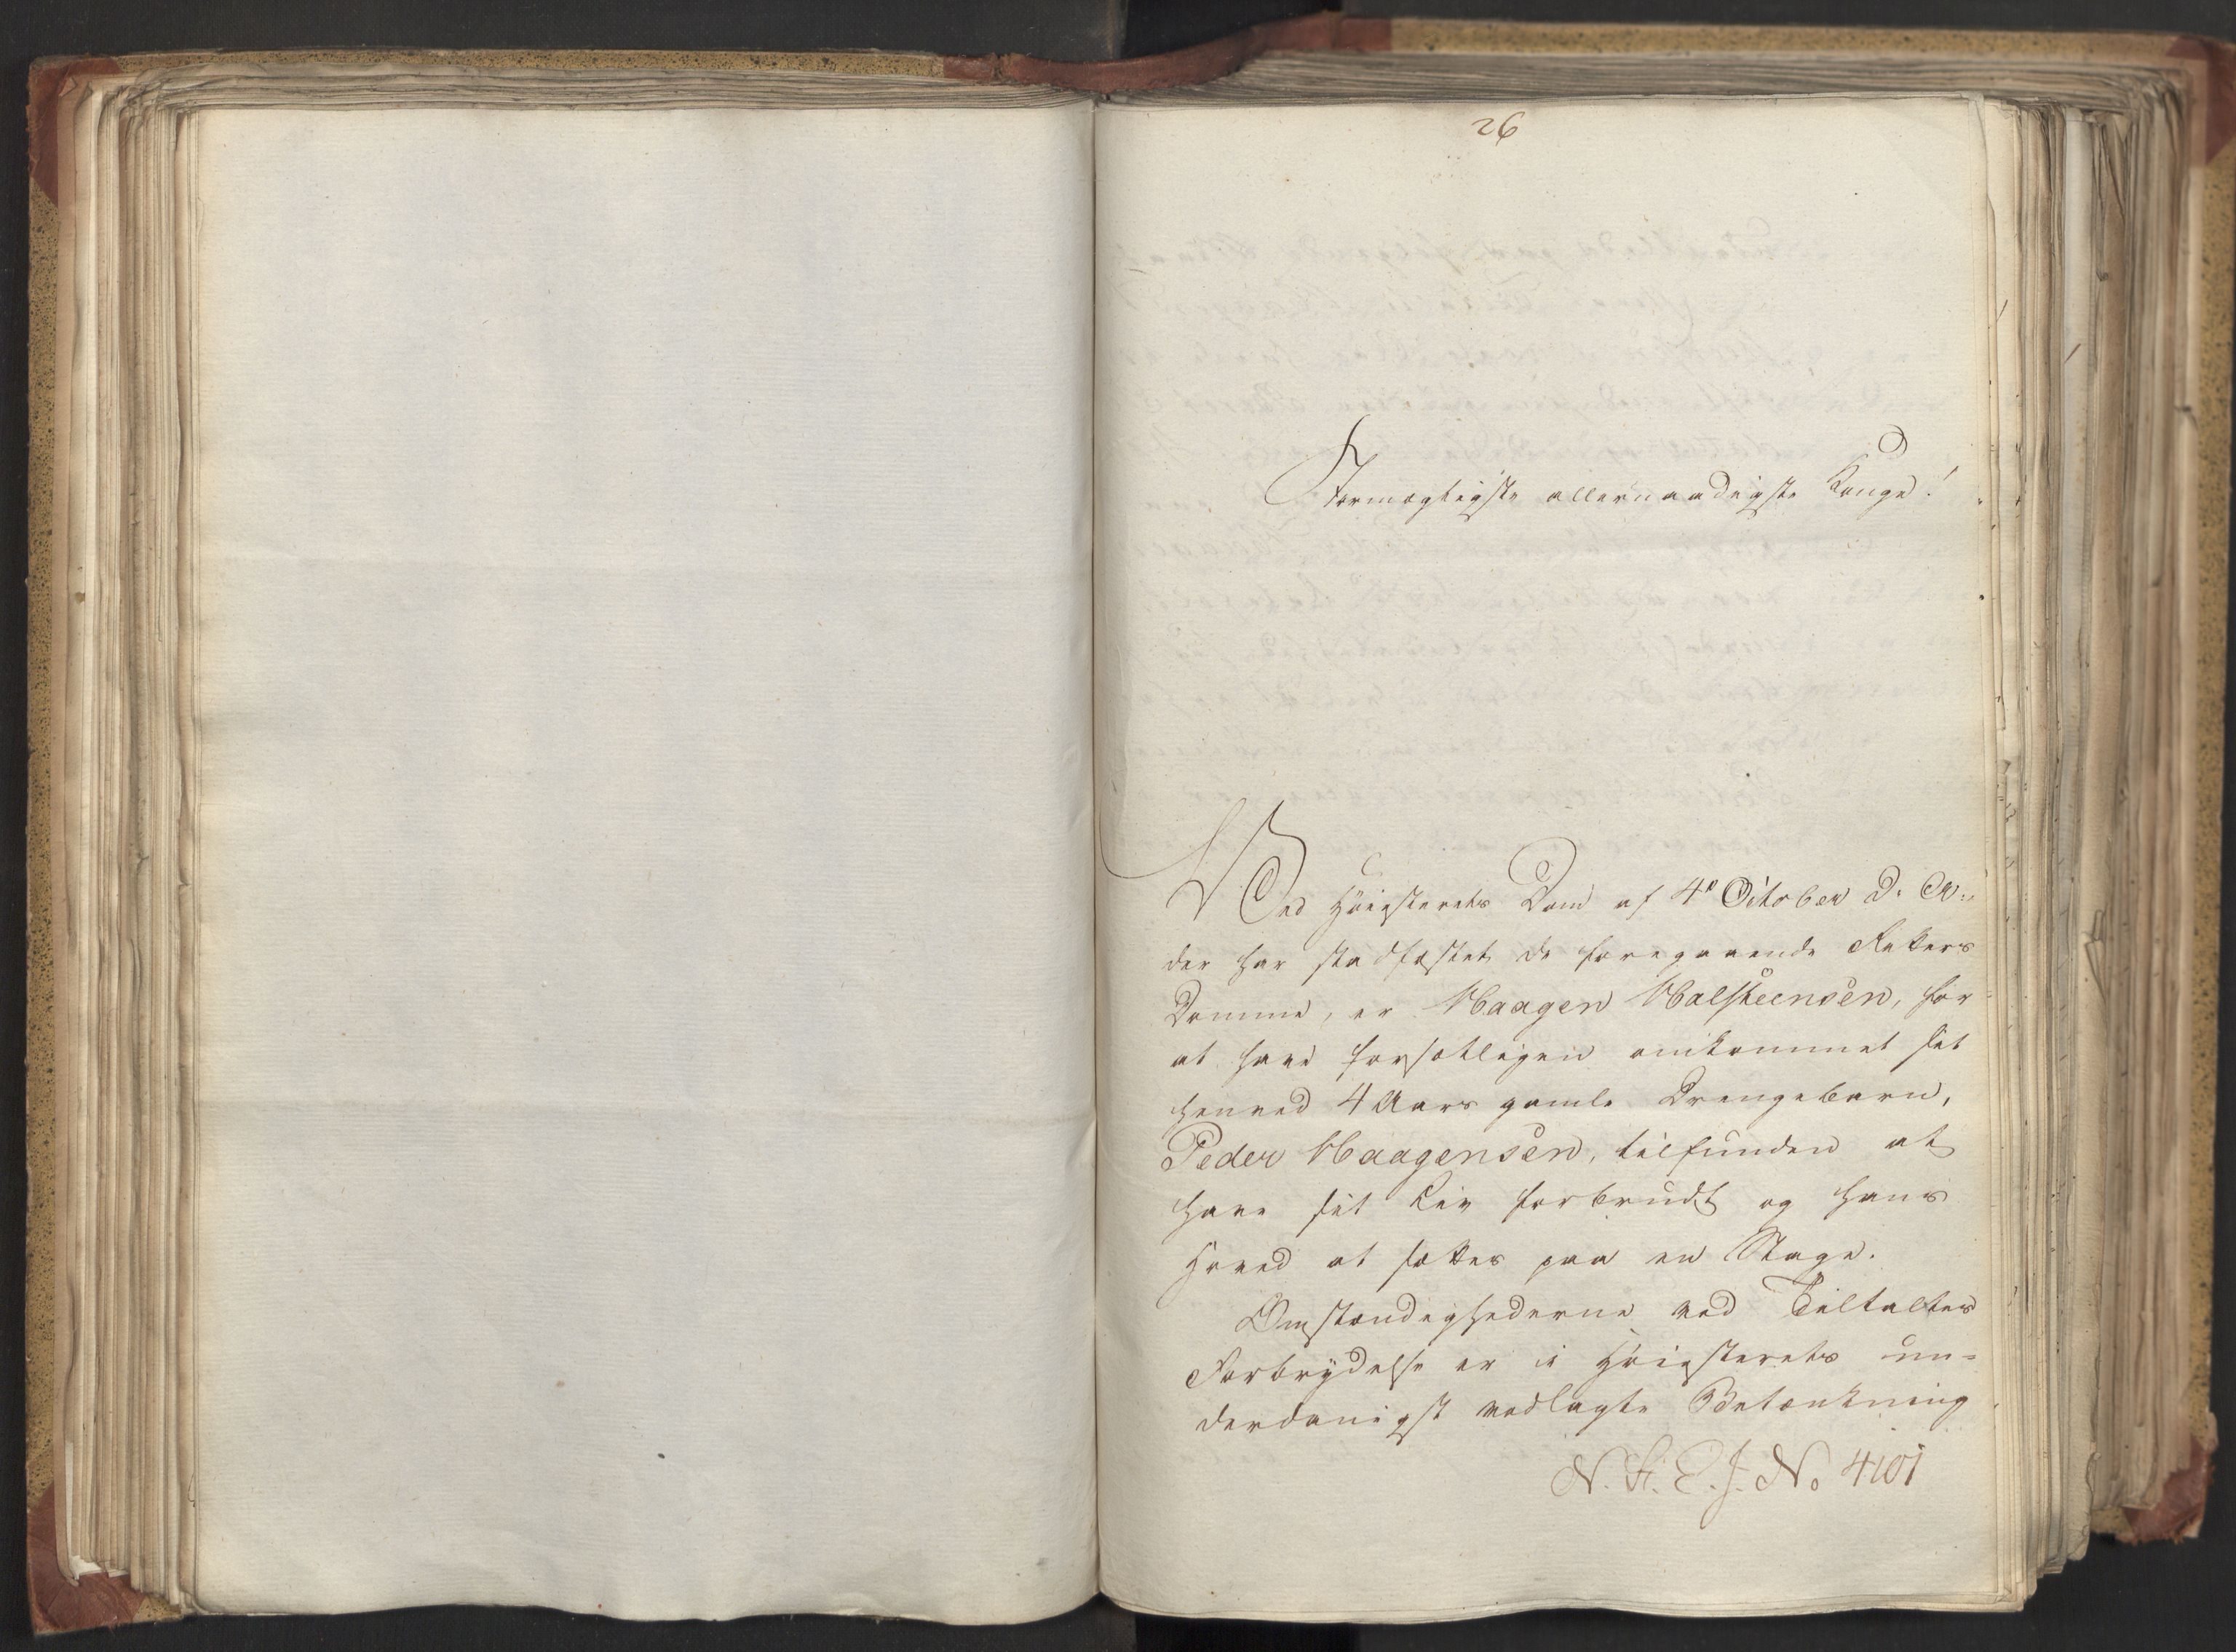 26
Stormægtigste allernaadigste Konge!
Ved Høiesterets Dom af 4de October d. A.,
der har stadfæstet de foregaaende Retters
Domme, er Haagen Halsteensen, for
at have forsætligen omkommet sit
henved 4 Aars gamle Drengebarn,
Peder Haagensen, tilfunden at
have sit Liv forbrudt og hans
Hoved at sættes paa en Stage.
Omstændighederne ved Tiltaltes
Forbrydelse er i Høiesterets un-
derdanigst vedlagte Betænkning
No 4101